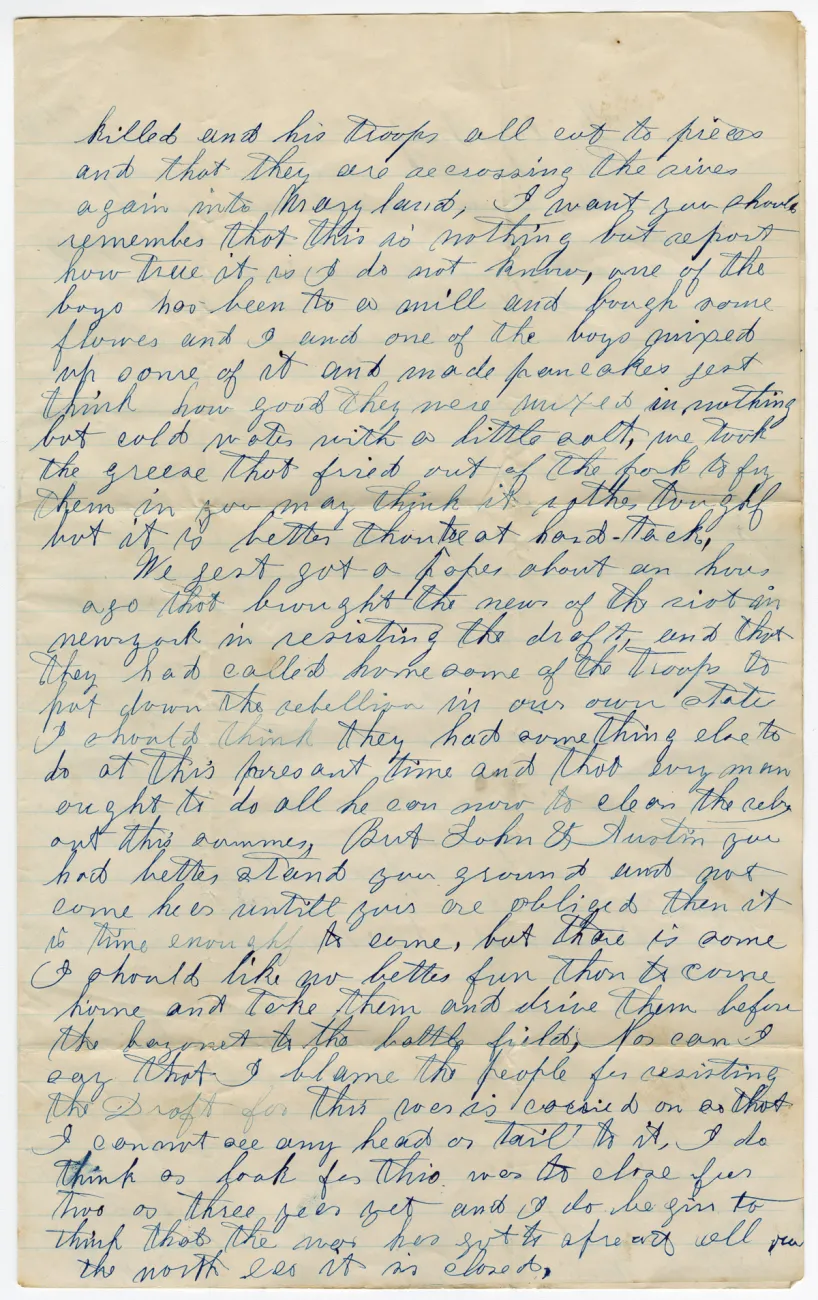 killed and his troops all cut to pieces
and that they are accrossing the river
again into Maryland, I want you should
remember that this is nothing but report
how true it is I do not know, one of the
boys has been to a mill and bough some
flower and I and one of the boys mixed
up some of it and made pancakes jest
think how good they were mixed in nothing
but cold water with a little salt, we took
the greese that fried out of the pork to fry
them in you may think it rather tought
but it is better than to eat hard-tack,
We jest got a paper about an hour
ago that brought the news of the riot in
newyork in resisting the draft, and that
they had called home some of the troops to
put down the rebellion in our own state
I should think they had something else to
do at this presant time and that evry man
ought to do all he can now to clean the rebs
out this summer, But John & Austin you
had better stand you ground and not
come here untill your are obliged then it
is time enough to come, but there is some
I should like no better fun than to come
home and take them and drive them before
the bayonet to the battle field, Nor can I
say that I blame the people for resisting
the Draft for this war is carried on so that
I cannot see any head or tail to it, I do
think or look for this war to close for
two or three year yet and I do begin to
think that the war has got to spread all over
the north eer it is closed,